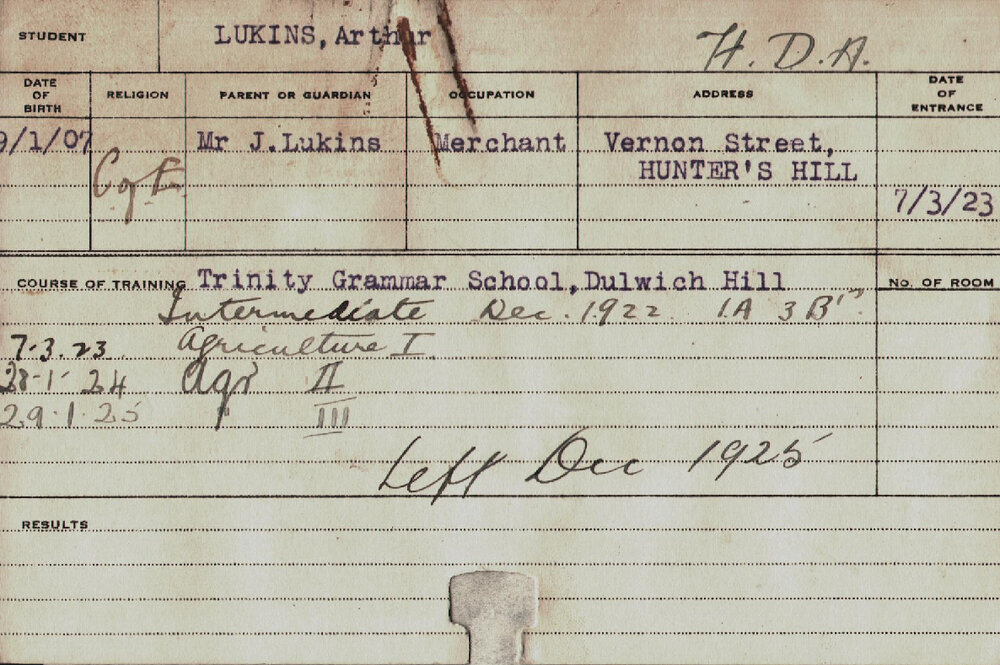 STUDENT LUKINS, Arthur H. D. A.
DATE OF BIRTH RELIGION PARENT OR GUARDIAN OCCUPATION ADDRESS DATE OF ENTRANCE
9/1/07 Mr J.Lukins Merchant Vernon Street,
C of E HUNTER'S HILL
7/3/23
COURSE OF TRAINING Trinity Grammar School,Dulwich Hill No. OF ROOM
Intermediate Dec. 1922 1A 3B's
7.3.23 Agriculture I
28-1-24 Agr II
29.1.25 " III
Left Dec 1925
RESULTS